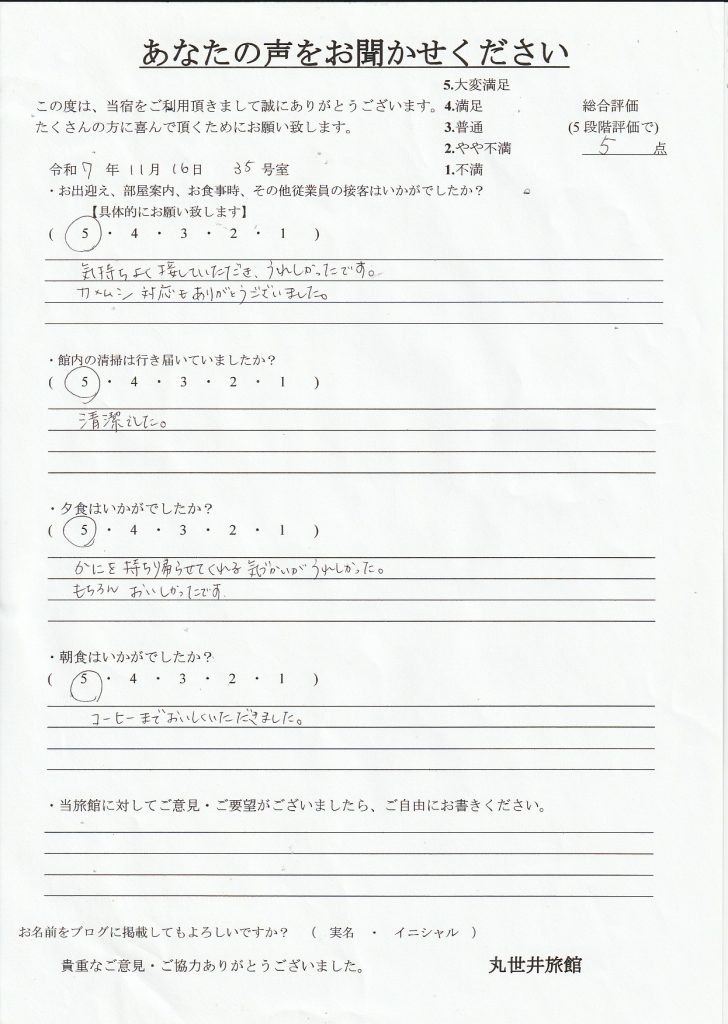 あなたの声をお聞かせください
5.大変満足
この度は、当宿をご利用頂きまして誠にありがとうございます。 4.満足 総合評価
たくさんの方に喜んで頂くためにお願い致します。 3.普通 (5段階評価で)
2.やや不満 5 点
令和7年11月16日 35号室 1.不満
・お出迎え、部屋案内、お食事時、その他従業員の接客はいかがでしたか？
【具体的にお願い致します】
( 5 ・ 4 ・ 3 ・ 2 ・ 1 )
気持ちよく接していただき、うれしかったです。
カメムシ対応もありがとうございました。
・館内の清掃は行き届いていましたか？
( 5 ・ 4 ・ 3 ・ 2 ・ 1 )
清潔でした。
・夕食はいかがでしたか？
( 5 ・ 4 ・ 3 ・ 2 ・ 1 )
かにを持ち帰らせてくれる気づかいがうれしかった。
もちろんおいしかったです
・朝食はいかがでしたか？
( 5 ・ 4 ・ 3 ・ 2 ・ 1 )
コーヒーまでおいしくいただきました。
・当旅館に対してご意見・ご要望がございましたら、ご自由にお書きください。
お名前をブログに掲載してもよろしいですか？ ( 実名 ・ イニシャル )
貴重なご意見・ご協力ありがとうございました。 丸世井旅館